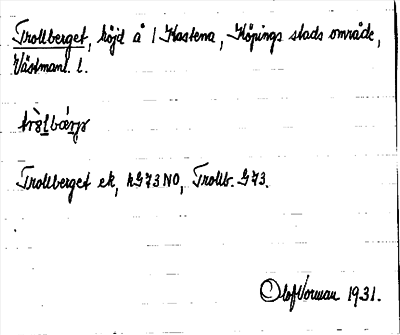 Trollberget, höjd å 1 Kastena, Köpings stads område,
Västmanl. l.
Trollberget ek, G73 NO, Trollb. G73.
Olof Vorman 1931.